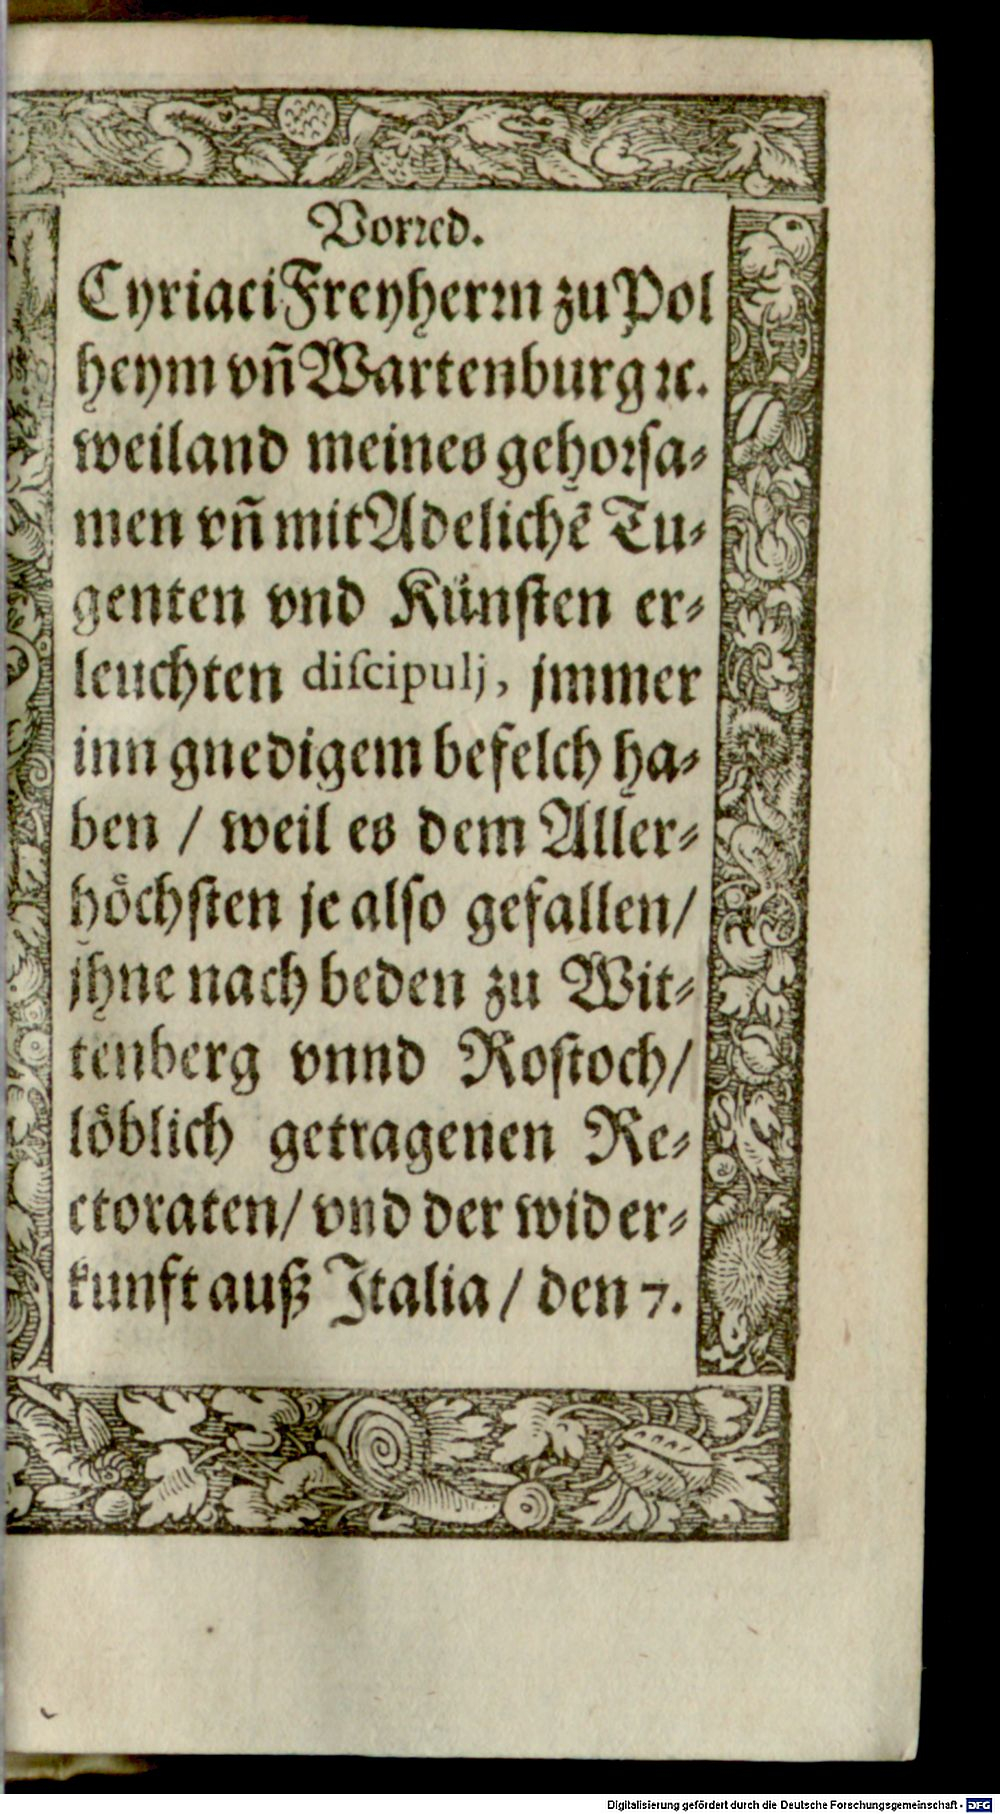 Vorred.
Cyriaci Freyherrn zu Pol
heym vñ Wartenburg ꝛc.
weiland meines gehorsa⸗
men vñ mit Adelichẽ Tu⸗
genten vnd Künsten er⸗
leuchten discipulj, jmmer
inn gnedigem befelch ha⸗
ben / weil es dem Aller⸗
höchsten je also gefallen /
jhne nach beden zu Wit⸗
tenberg vnnd Rostoch /
löblich getragenen Re⸗
ctoraten / vnd der wider⸗
kunft auß Italia / den 7.
Digitalisierung gefördert durch die Deutsche Forschungsgemeinschaft - DFG